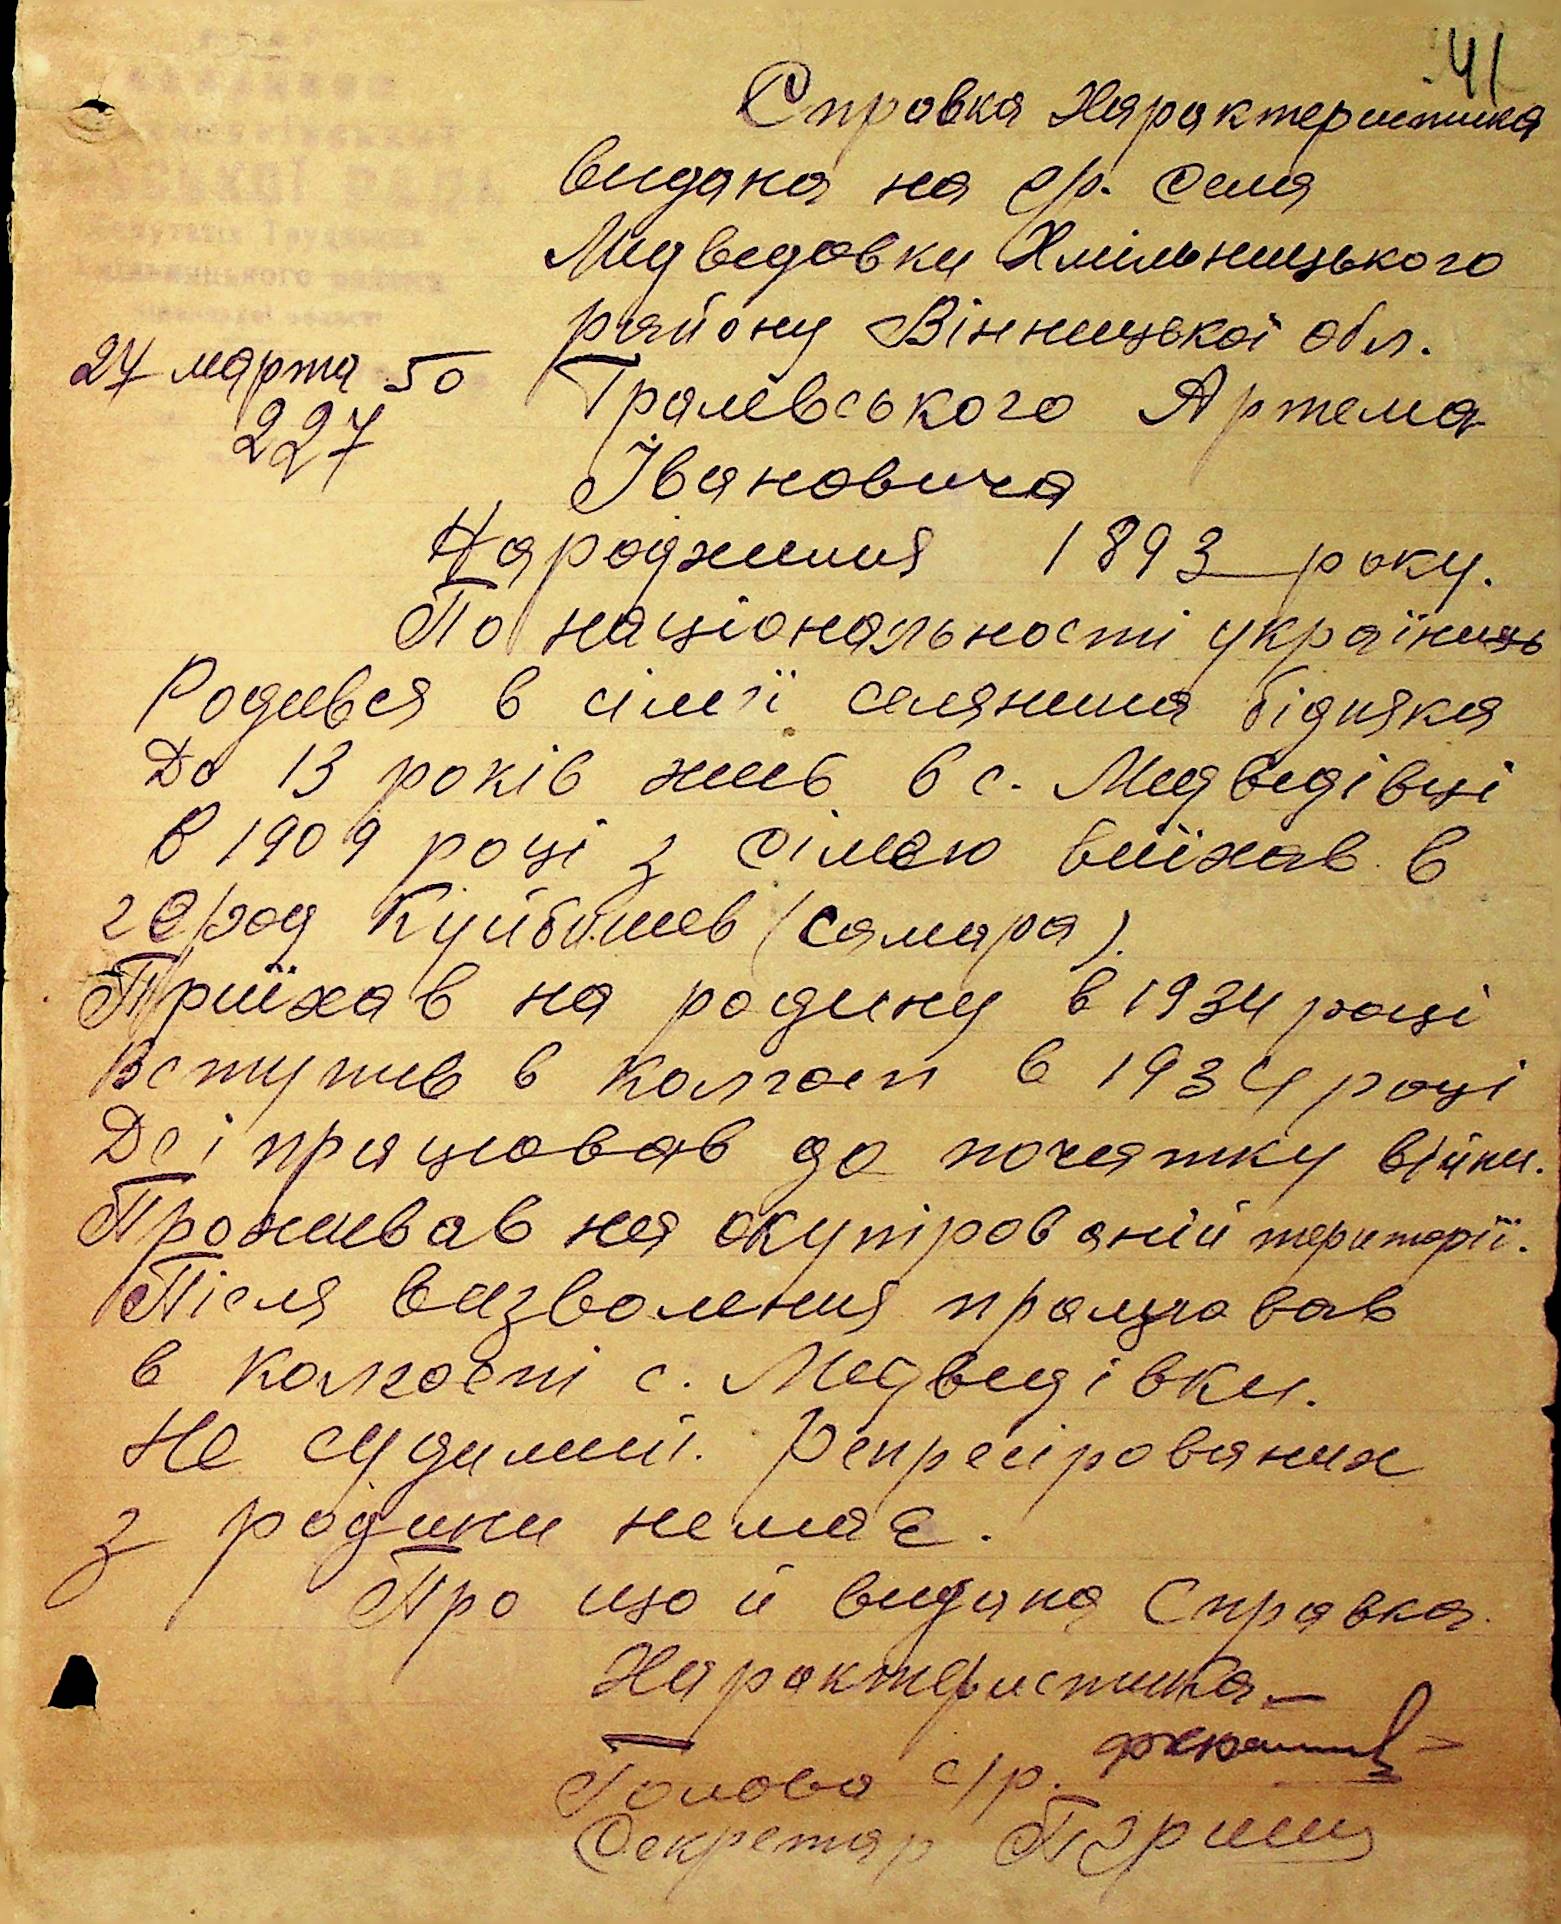 41
Справка Характеристика
видана на гр. Села
Медведовки Хмільницького
району Вінницької обл.
27 марта 50
227
Гралєвського Артема
Івановича
Народження 1893 року.
По національності українець
Родився в сім'ї селянина бідняка
До 13 років жив в с. Медведівці
В 1909 році з сімєю виїхав в
город Куйбишев (Самара).
Приїхав на родину в 1934 році
Вступив в колгосп в 1934 році
Де і працював до початку війни.
Проживав на окупірованій території.
Після визволення працював
в колгоспі с. Медведівки.
Не судимий. Репресірованих
з родини немає.
Про що й видана Справка
Характеристика
Голова с/р.
Секретар